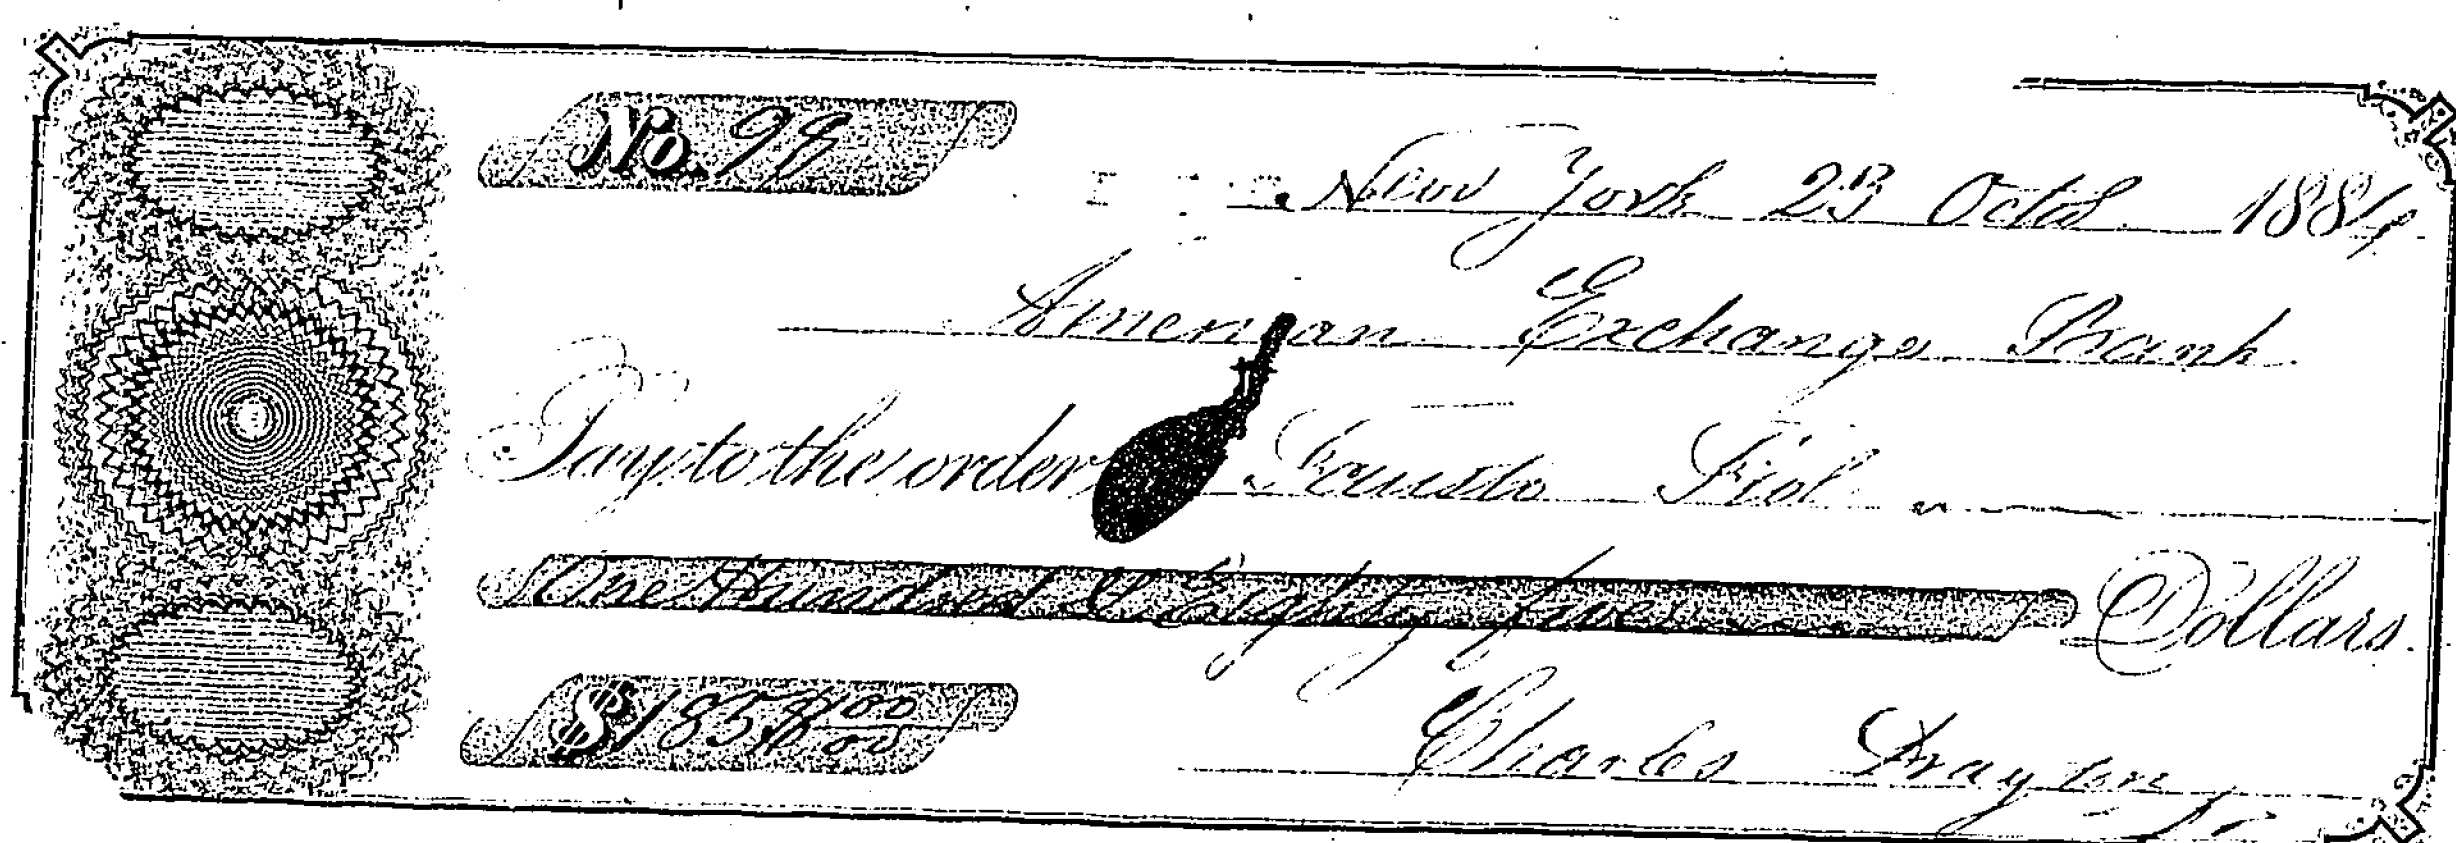 No. 98
New York 23 Octb. 1884
American Exchange Bank
Pay to the order Fausto Fiol
One Hundred & Eighty five Dollars.
$185 00/00
Charles Drayton